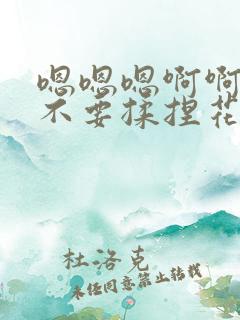 嗯嗯嗯啊啊
不要揉捏花
杜洛克
未经同意禁止转载